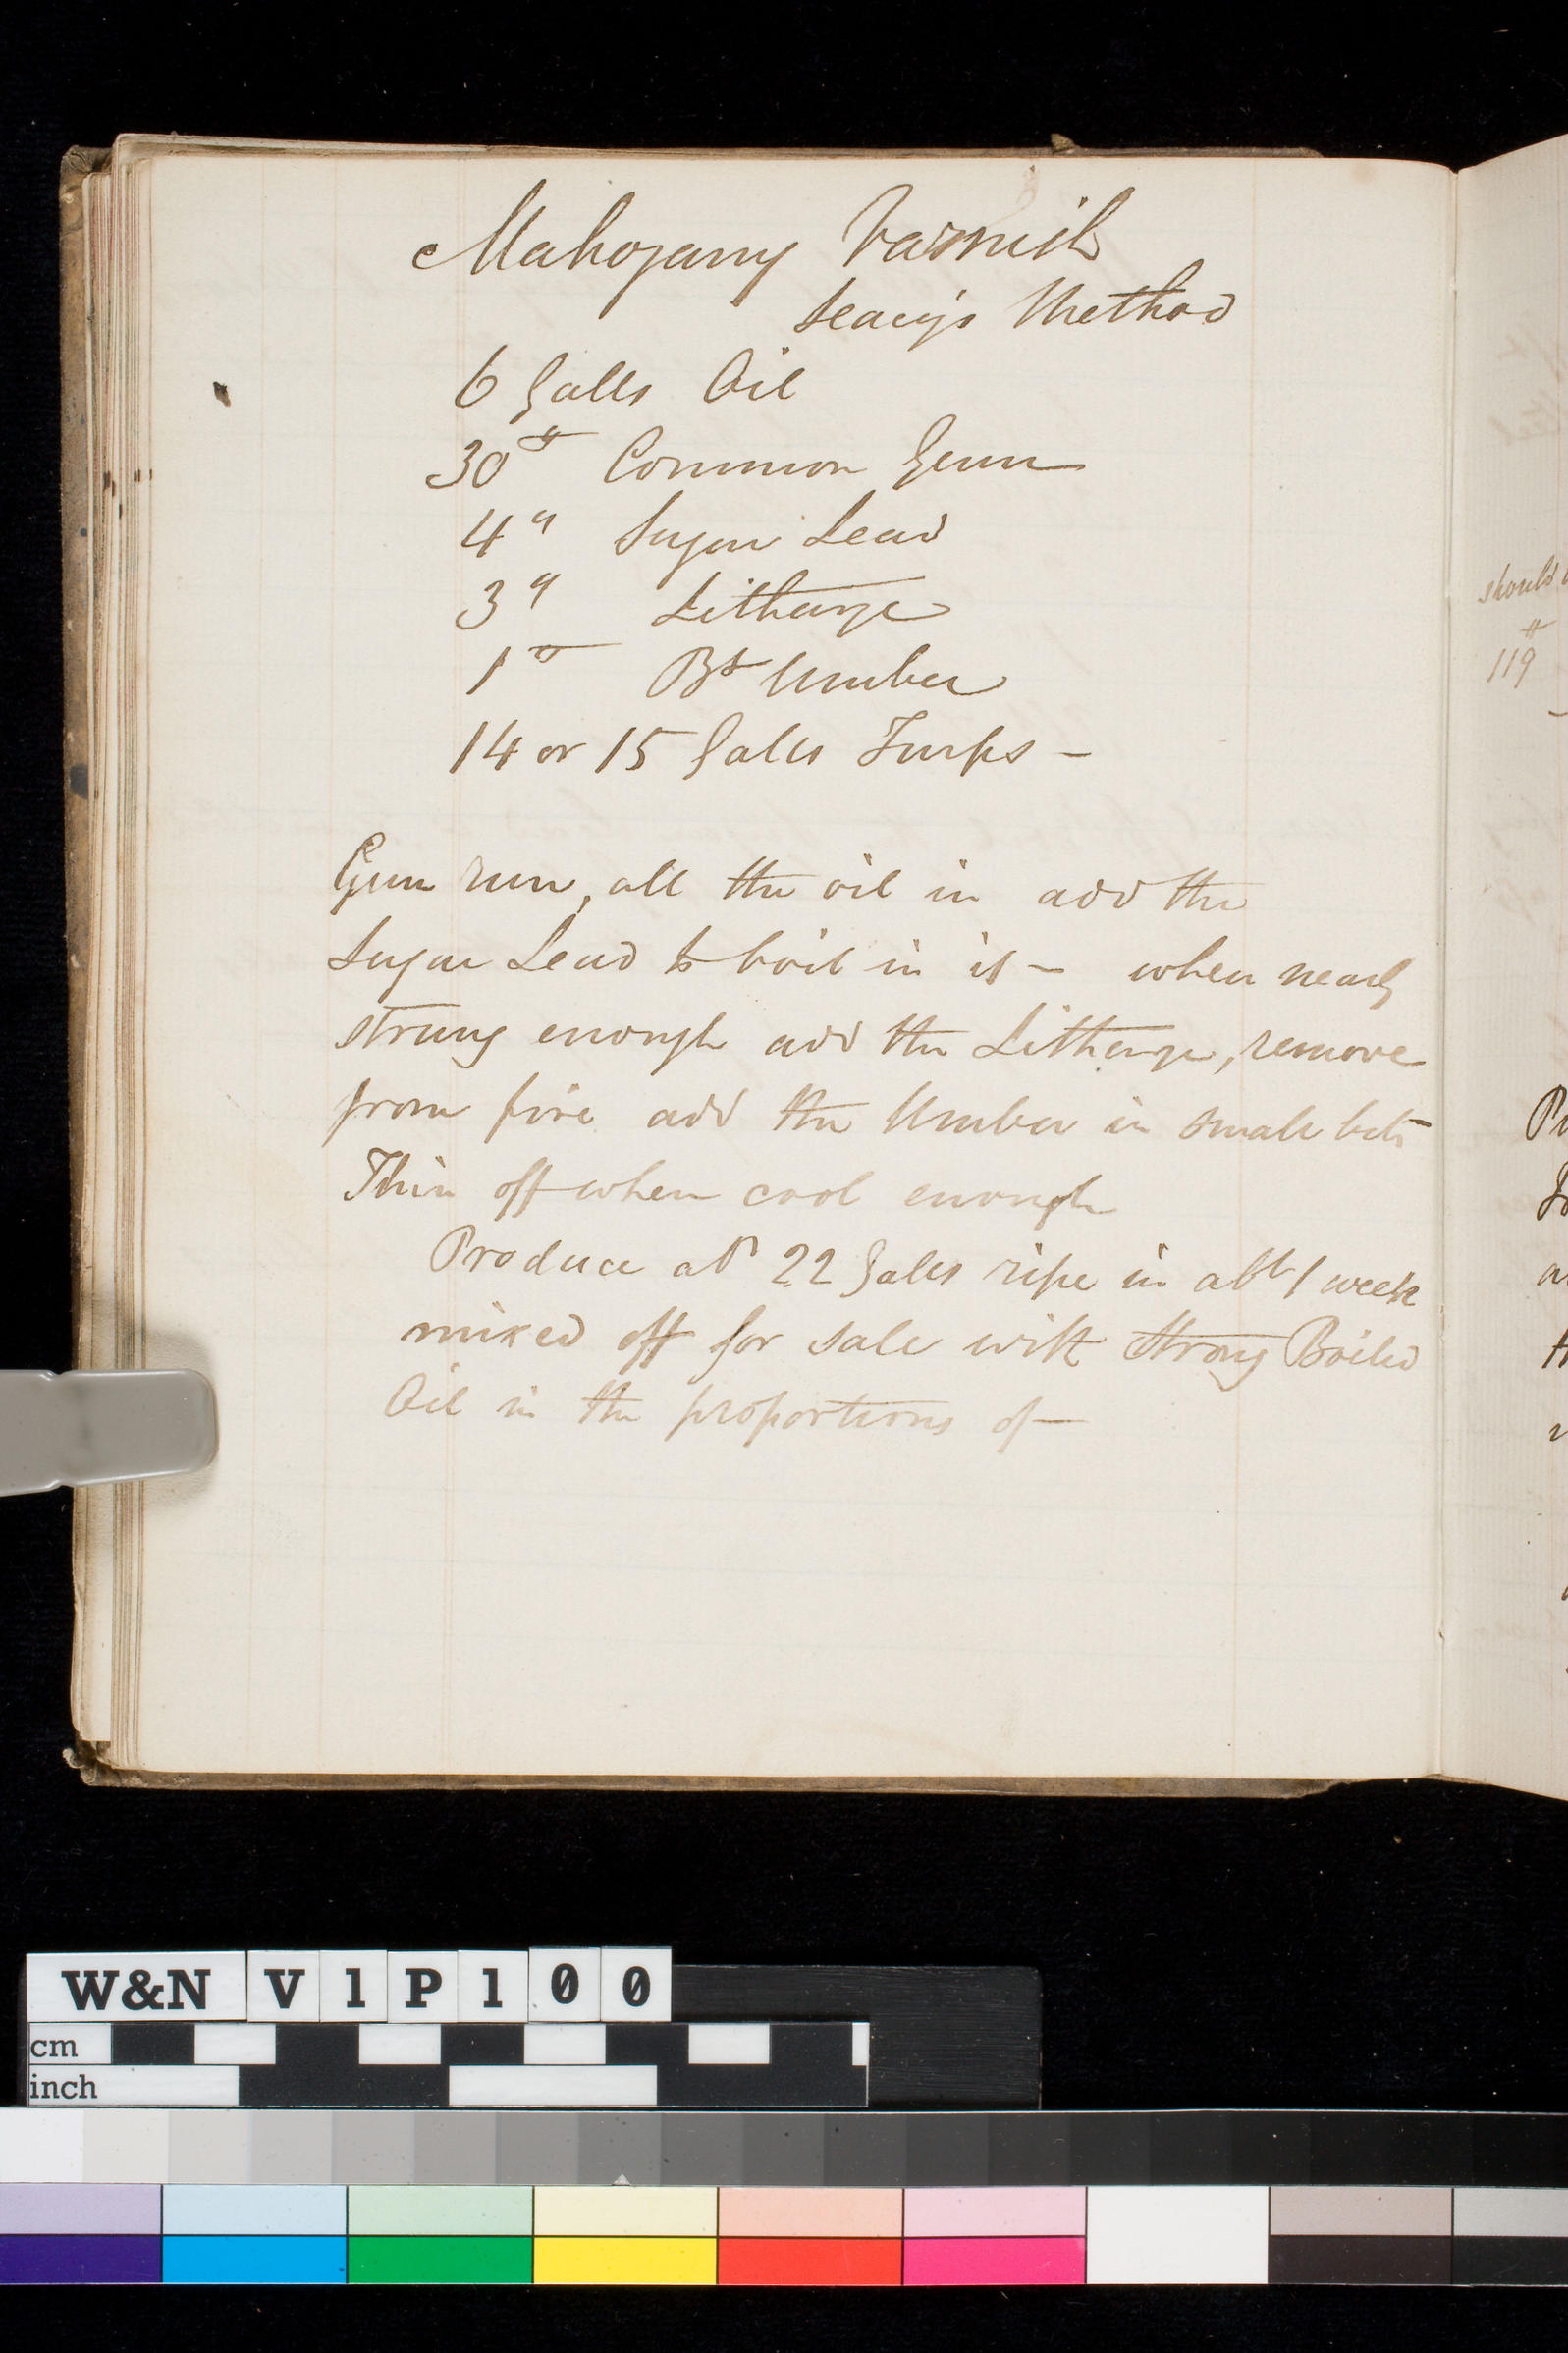 Mahogany Varnish
Seary's Method
6 Galls Oil
30 # Common Gum
4 " Sugar Lead
3 " Litharge
1 # Bt Umber
14 or 15 Galls Turps -
Gum run, all the oil in add the
Sugar Lead to boil in it - when nearly
strong enough add the Litharge, remove
from fire add the Umber in small bits
Thin off when cool enough
Produce abt 22 Galls ripe in abt 1 week
mixed off for sale with Strong Boiled
Oil in the proportions of -
should
#
119
W&N V1P100
cm
inch